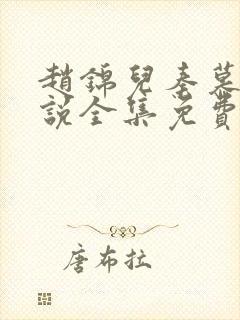 趙錦兒秦慕
說全集免費
唐布拉